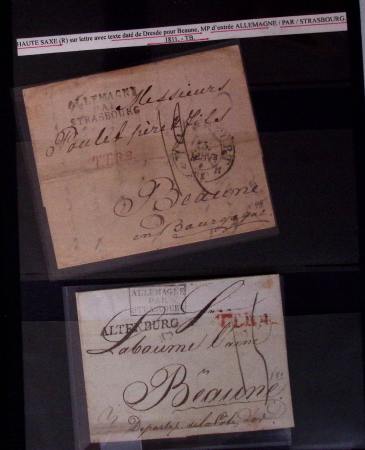 HAUTE SAXE (R) sur lettre avec texte daté de Dresde pour Beaune, MP d'entrée ALLEMAGNE / PAR / STRASBOURG.
1811. - TB.
ALLEMAGNE
PAR
STRASBOURG
Messieurs
Poulet père & fils
T.F.R.3.
Beaune
en Bourgogne
ALLEMAGNE
PAR
ALTENBURG
T.F.R.4.
Beaune
Départ. de la Côte d'or